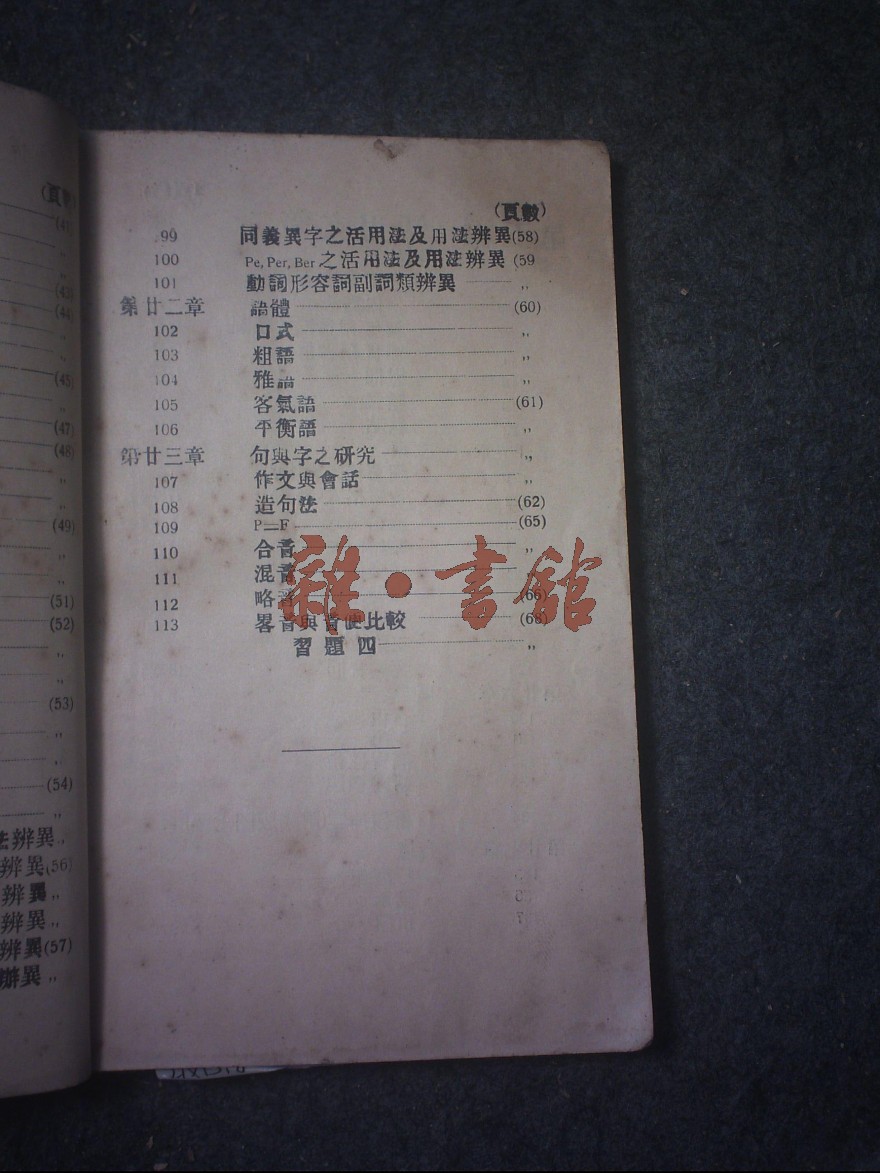 (頁
(43)
(44)
(45)
(47)
(48)
(49)
(51)
(52)
(53)
(54)
法辨異〃
辨異(56)
辨異〃
辨異〃
辨異(57)
辦異〃
(頁數)
99 同義異字之活用法及用法辨異(58)
100 Pe, Per, Ber 之活用法及用法辨異 (59
101 動詞形容詞副詞類辨異 〃
第廿二章 語體 (60)
102 口式 〃
103 粗語 〃
104 雅語 〃
105 客氣語 (61)
106 平衡語 〃
第廿三章 句與字之研究 〃
107 作文與會話 〃
108 造句法 (62)
109 P＝F (65)
110 合音 〃
111 混音
112 略音 (66)
113 畧音與音便比較 (68)
習題四 〃
雜·書館